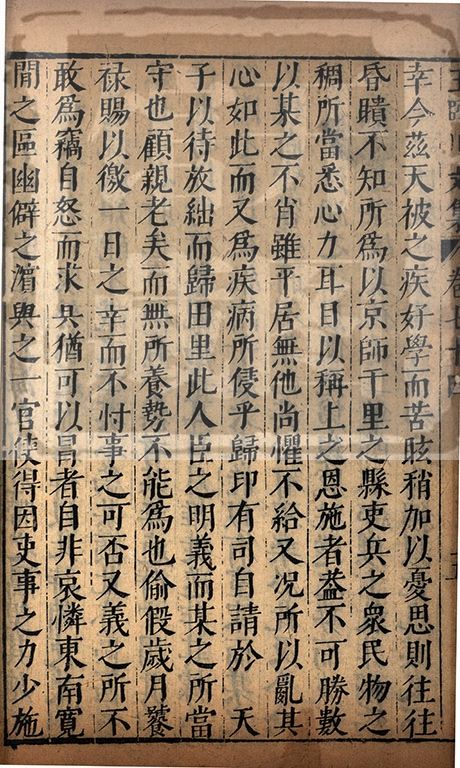 王臨川文集 卷七十四
幸今茲天被之疾好學而苦眩稍加以憂思則往往
昏瞶不知所爲以京師千里之縣吏兵之衆民物之
稠所當悉心力耳目以稱上之恩施者葢不可勝數
以某之不肖雖平居無他尚懼不給又况所以亂其
心如此而又爲疾病所侵乎歸印有司自請於　天
子以待放絀而歸田里此人臣之明義而某之所當
守也顧親老矣而無所養勢不能爲也偷假歲月饕
祿賜以徼一日之幸而不忖事之可否又義之所不
敢爲竊自恕而求其猶可以冒者自非哀憐東南寬
閒之區幽僻之濵與之一官使得因吏事之力少施